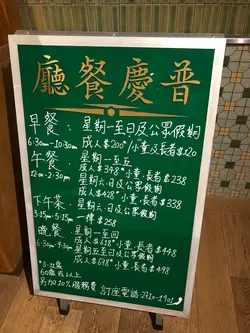 廳餐慶普
早餐：星期一至日及公眾假期
6:30am-10:30am 成人$200*/小童及長者$120
午餐：星期一至五
12n.n-2:30pm 成人$348*小童,長者$238
星期六,日及公眾假期
成人$428*小童,長者$338
下午茶：星期六,日及公眾假期
3:15pm-5:15pm 一律$258
晚餐：星期一至四
6:30pm-9:30pm 成人$618*小童,長者$448
星期五,六,日及公眾假期
成人$698*小童,長者$498
*3-11歲
60歲或以上
另加10%服務費 訂座電話:2710-1901